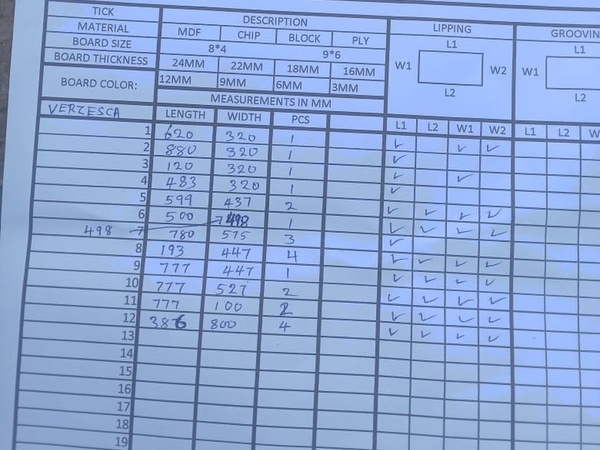 TICK DESCRIPTION LIPPING GROOVIN
MATERIAL MDF CHIP BLOCK PLY L1 L1
BOARD SIZE 8*4 9*6
BOARD THICKNESS 24MM 22MM 18MM 16MM W1 W2 W1
BOARD COLOR: 12MM 9MM 6MM 3MM L2 L2
MEASUREMENTS IN MM
VERZESCA LENGTH WIDTH PCS L1 L2 W1 W2 L1 L2 W
1 620 320 1
2 880 320 1
3 120 320 1
4 483 320 1
5 599 437 2
6 500 1
498 7 780 575 3
8 193 447 4
9 777 447 1
10 777 527 2
11 777 100 2
12 386 800 4
13
14
15
16
17
18
19